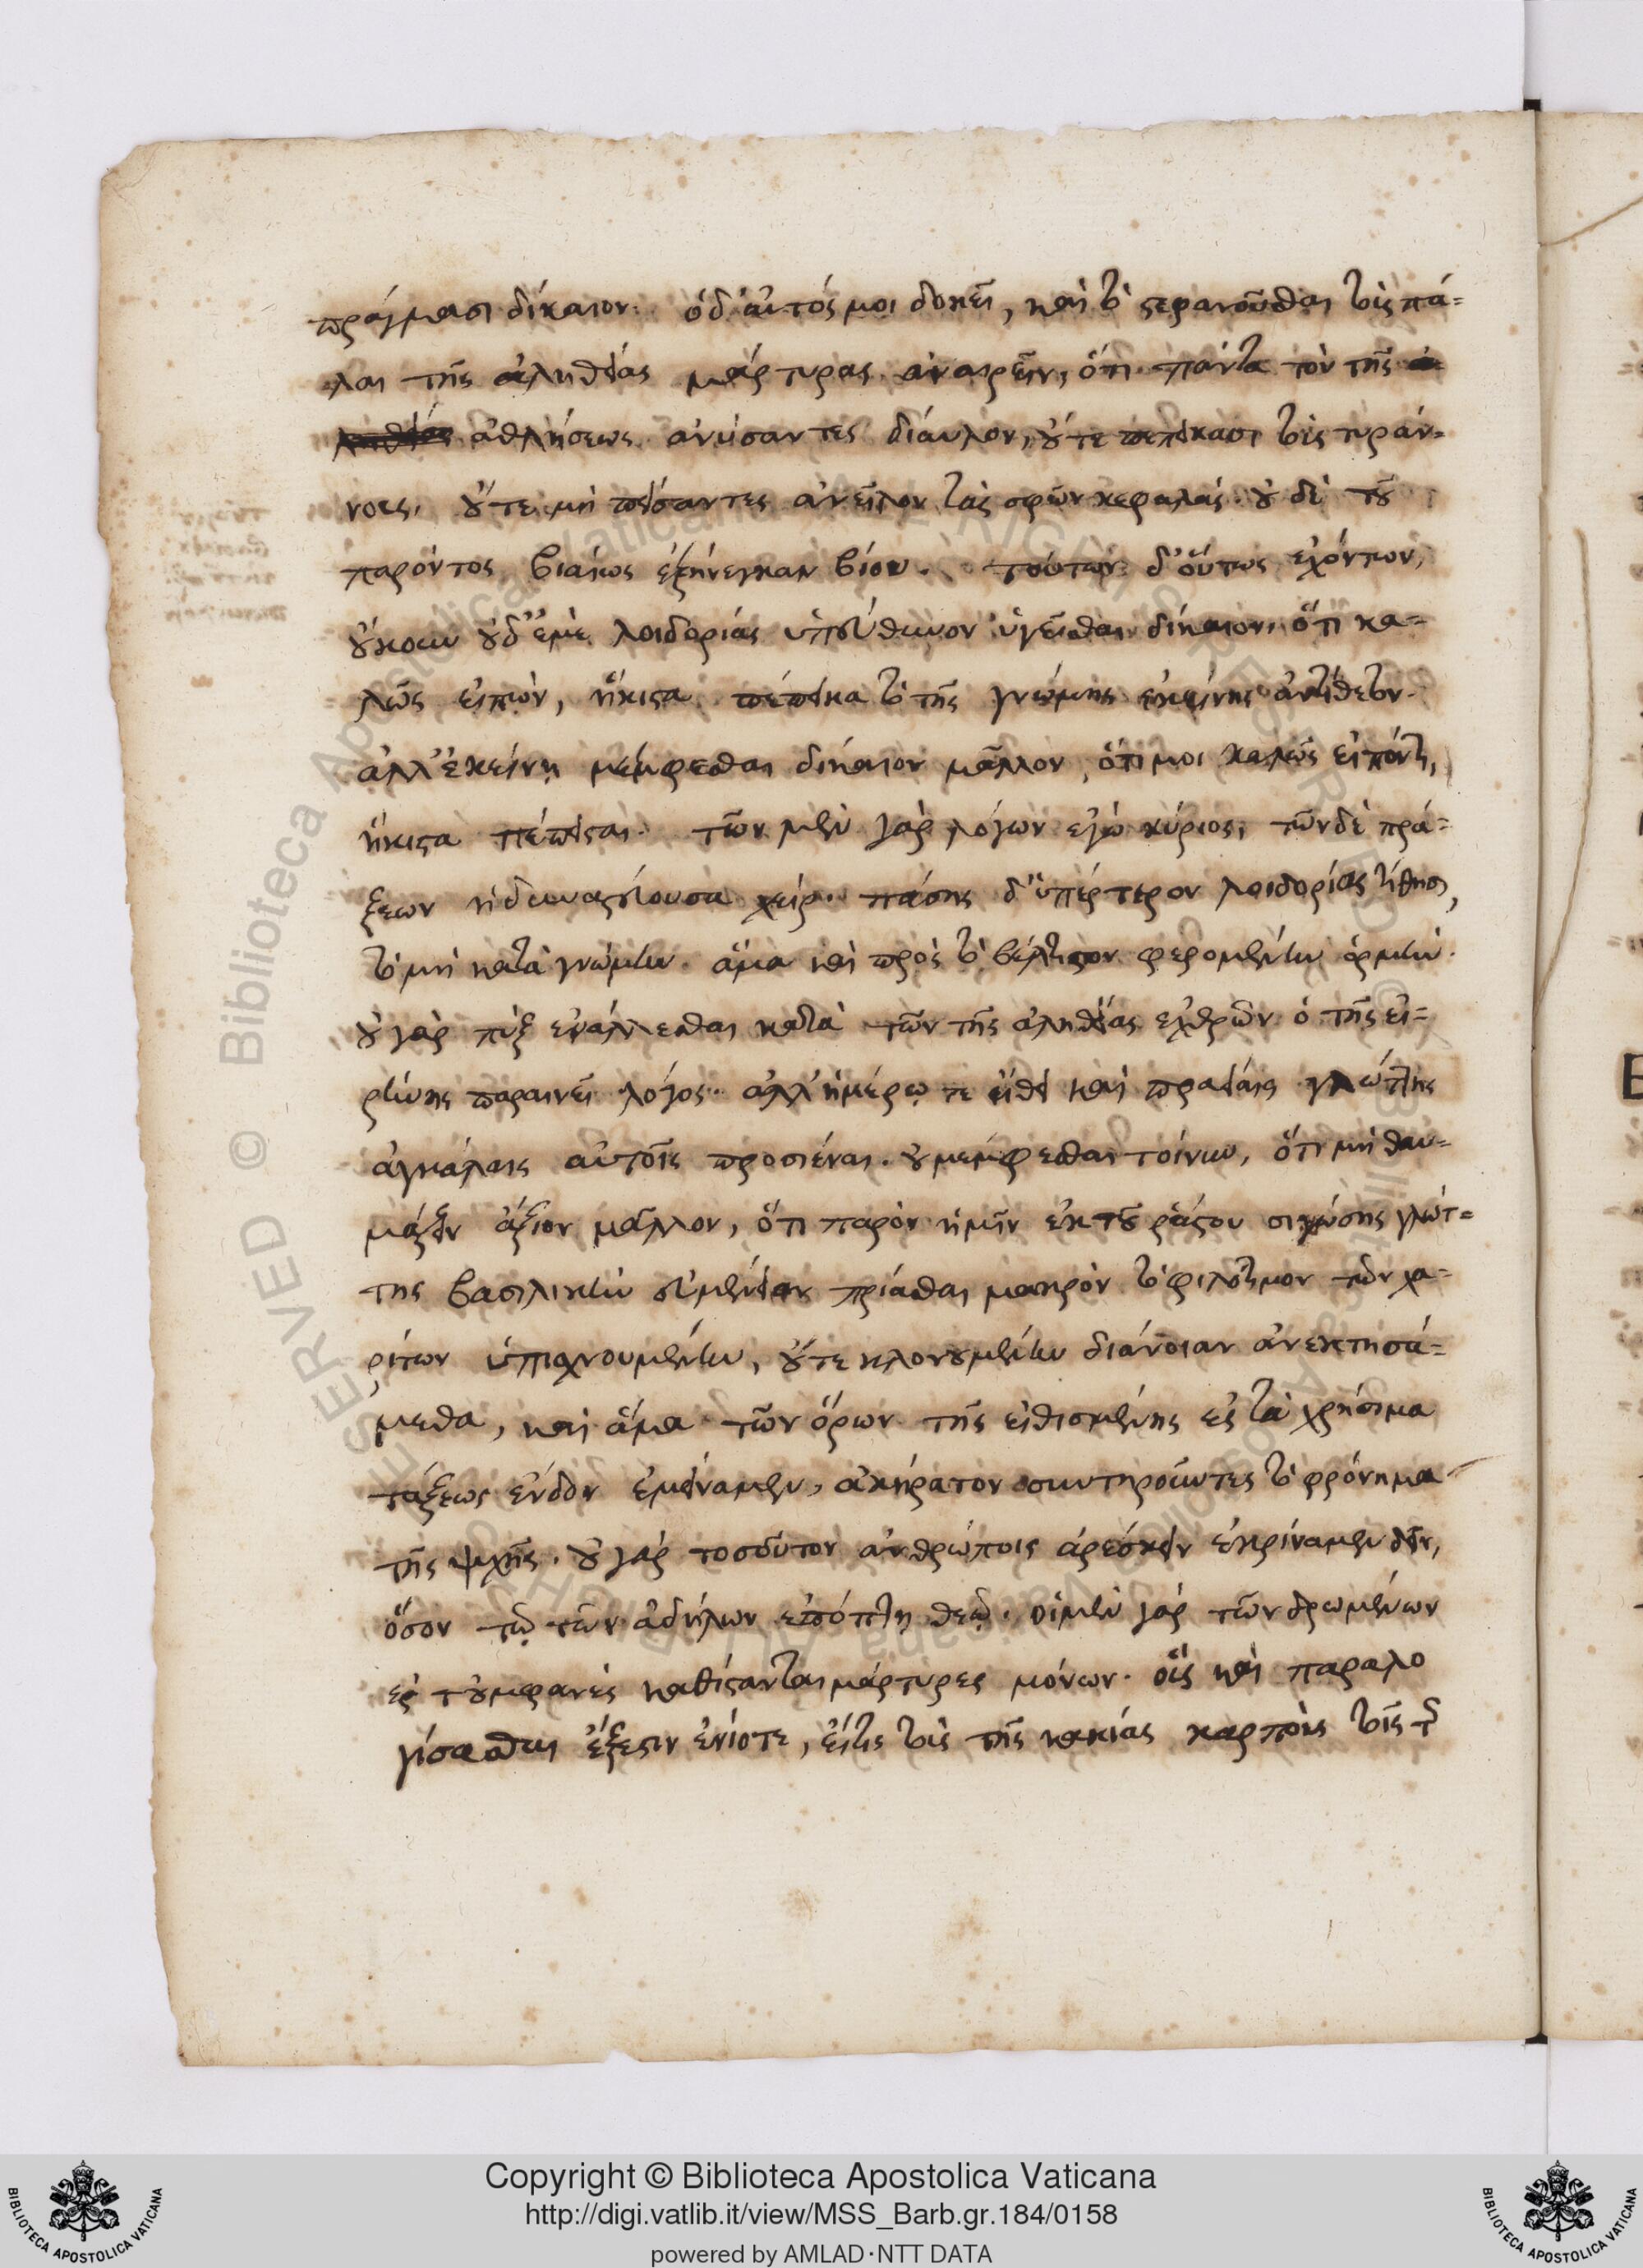 πράγμασι δίκαιον. ὁ δ' αὐτός μοι δοκεῖ, καὶ τὸ στεφανοῦσθαι τοὺς πά=
λαι τῆς ἀληθείας μάρτυρας ἀναιρεῖν, ὅτι πάντα τὸν τῆς
ἀθλήσεως ἀνύσαντες δίαυλον, οὔτε πεπείκασι τοὺς τυράν=
νους, οὔτε μὴ πείσαντες ἀνεῖλον τὰς σφῶν κεφαλάς. οὐδὲ τοῦ
παρόντος βιαίως ἐξήνεγκαν βίου. τούτων δ' οὕτως ἐχόντων,
οὔκουν οὐδ' ἐμὲ λοιδορίας ὑπεύθυνον ἡγεῖσθαι δίκαιον, ὅτι κα=
λῶς εἰπὼν, ἥκιστα πέπεικα τὸ τῆς γνώμης ἐκείνης ἀντίθετον.
ἀλλ' ἐκείνῃ μέμφεσθαι δίκαιον μᾶλλον, ὅτι μοι καλῶς εἰπόντι,
ἥκιστα πέπεισται. τῶν μὲν γὰρ λόγων ἐγὼ κύριος, τῶν δὲ πρά=
ξεων ἡ δυναστεύουσα χείρ. πάσης δ' ὑπέρτερον λοιδορίας τίθησι,
τὸ μὴ κατὰ γνώμην. ἅμα καὶ πρὸς τὸ βέλτιστον φερομένην ὁρμήν.
οὐ γὰρ πὺξ ἐνάλλεσθαι κατὰ τῶν τῆς ἀληθείας ἐχθρῶν ὁ τῆς εἰ=
ρήνης παραινεῖ λόγος. ἀλλ' ἡμέρῳ τε ἤθει καὶ πραείαις γλώττης
ἀγκάλαις αὐτοῖς προσιέναι. οὐ μέμφεσθαι τοίνυν, ὅτι μὴ θαυ=
μάζειν ἄξιον μᾶλλον, ὅτι παρὸν ἡμῖν ἐκ τοῦ ῥάστου σιγώσης γλώτ=
της βασιλικὴν εὐμένειαν πρίασθαι μακρὸν τὸ φιλότιμον τῶν χα=
ρίτων ὑπισχνουμένην, οὔτε κλονουμένην διάνοιαν ἀνεκτησά=
μεθα, καὶ ἅμα τῶν ὅρων τῆς εἰθισμένης ἐς τὰ χρήσιμα
τάξεως ἔνδον ἐμείναμεν, ἀκήρατον συντηροῦντες τὸ φρόνημα
τῆς ψυχῆς. οὐ γὰρ τοσοῦτον ἀνθρώποις ἀρέσκειν ἐκρίναμεν δεῖν,
ὅσον τῷ τῶν ἀδήλων ἐπόπτῃ θεῷ. οἱ μὲν γὰρ τῶν δρωμένων
ἐς τοὐμφανὲς καθίστανται μάρτυρες μόνων. οἷς καὶ παραλο
γίσασθαι ἔξεστιν ἐνίοτε, εἴ τις τοὺς τῆς κακίας καρποὺς τοῖς τῆς